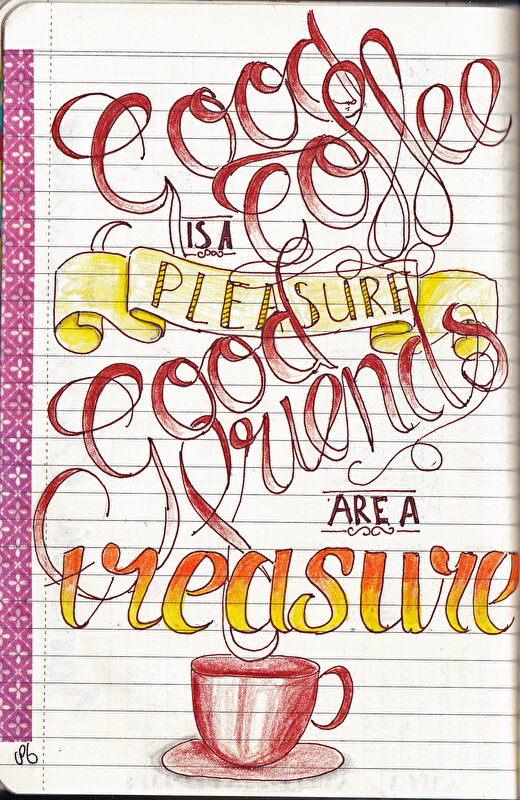 Good
Coffee
IS A
PLEASURE
Good
friends
ARE A
treasure